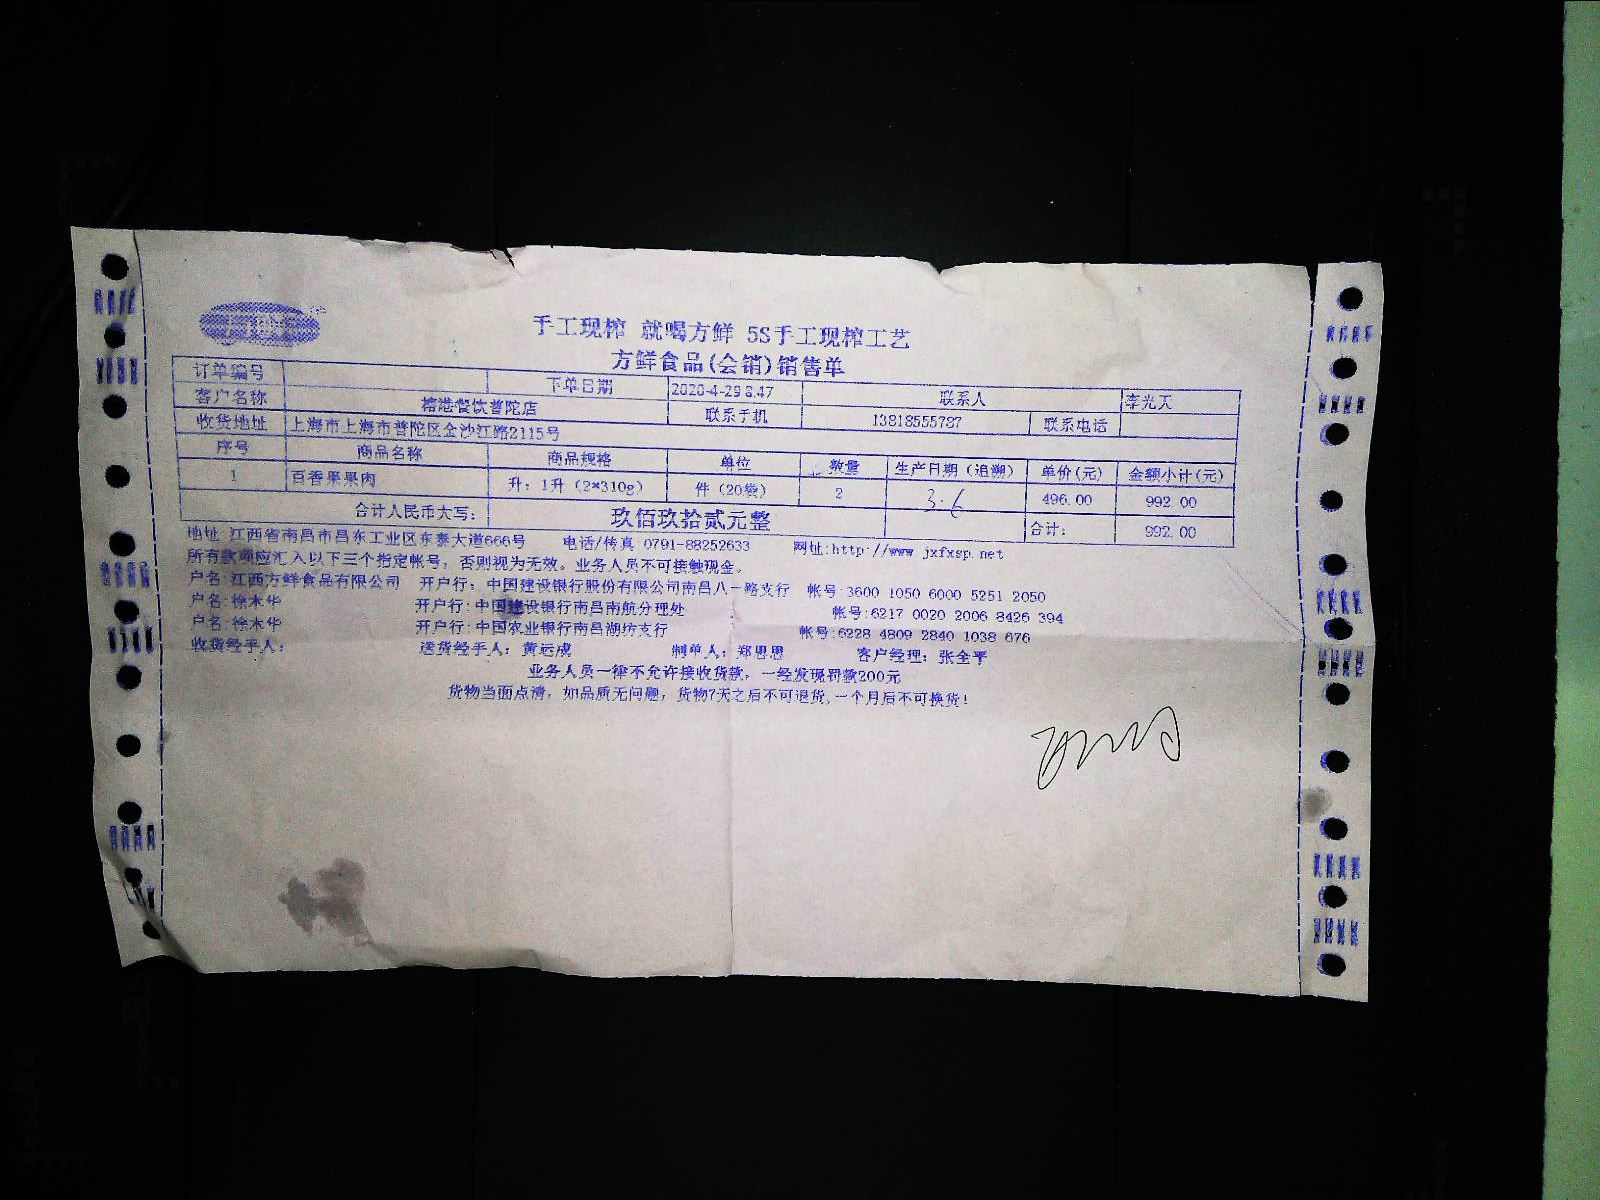 手工现榨 就喝方鲜 5S手工现榨工艺
方鲜食品(会销)销售单
订单编号 下单日期 2020-4-29 8:47 联系人 李光天
客户名称 榕港餐饮普陀店 联系手机 13818555787 联系电话
收货地址 上海市上海市普陀区金沙江路2115号
序号 商品名称 商品规格 单位 数量 生产日期(追溯) 单价(元) 金额小计(元)
1 百香果果肉 升：1升（2*310g） 件（20袋） 2 3.6 496.00 992.00
合计人民币大写： 玖佰玖拾贰元整 合计： 992.00
地址 江西省南昌市昌东工业区东泰大道666号 电话/传真 0791-88252633 网址:http://www.jxfxsp.net
所有款项应汇入以下三个指定帐号，否则视为无效。业务人员不可接触现金。
户名:江西方鲜食品有限公司 开户行：中国建设银行股份有限公司南昌八一路支行 帐号:3600 1050 6000 5251 2050
户名:徐木华 开户行:中国建设银行南昌南航分理处 帐号:6217 0020 2006 8426 394
户名:徐木华 开户行:中国农业银行南昌湖坊支行 帐号:6228 4809 2840 1038 676
收货经手人： 送货经手人：黄远成 制单人：郑思思 客户经理：张全平
业务人员一律不允许接收货款，一经发现罚款200元
货物当面点清，如品质无问题，货物7天之后不可退货,一个月后不可换货！